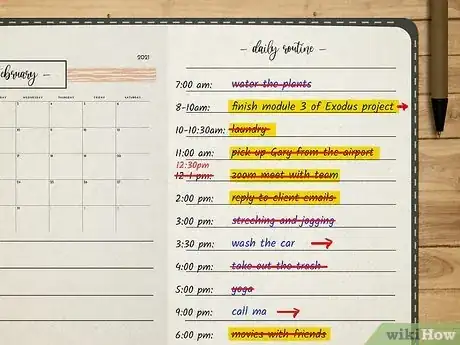 ebruary –
2021
WEDNESDAY THURSDAY FRIDAY SATURDAY
– daily routine –
7:00 am: water the plants
8-10am: finish module 3 of Exodus project
10-10:30am: laundry
11:00 am: pick up Gary from the airport
12:30pm
12-1 pm: zoom meet with team
2:00 pm: reply to client emails
3:00 pm: streching and jogging
3:30 pm: wash the car
4:00 pm: take out the trash
5:00 pm: yoga
9:00 pm: call ma
6:00 pm: movies with friends
wikiHow